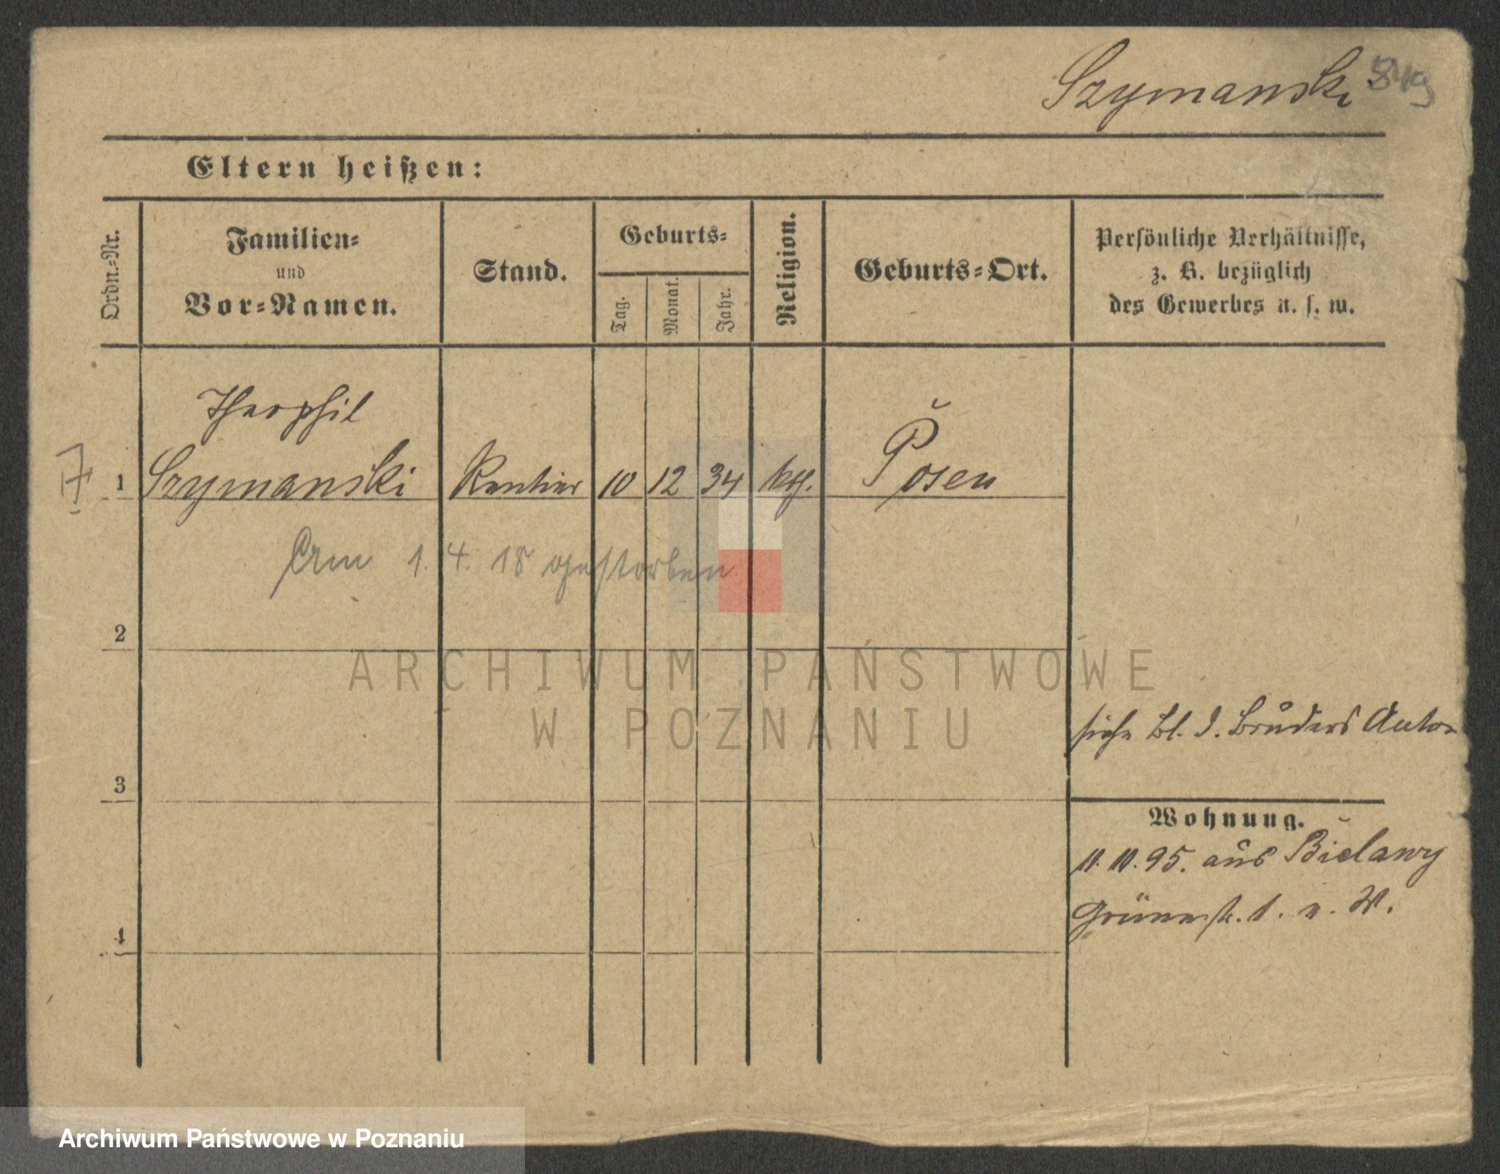 Szymanski 849
Eltern heißen:
Ordn.-Nr.
Familien-
und
Vor-Namen.
Stand.
Geburts-
Tag.
Monat.
Jahr.
Religion.
Geburts-Ort.
Persönliche Verhältnisse,
z. B. bezüglich
des Gewerbes u. s. w.
Theophil
1 Szymanski Rentier 10 12 34 ktl. Posen
Am 1. 4. 18 gestorben.
2
ARCHIWUM PAŃSTWOWE
W POZNANIU
siehe Bl. d. Bruders Anton
3
Wohnung.
11. 10. 95. aus Bielawy
Grünestr. 1. n. W.
4
Archiwum Państwowe w Poznaniu